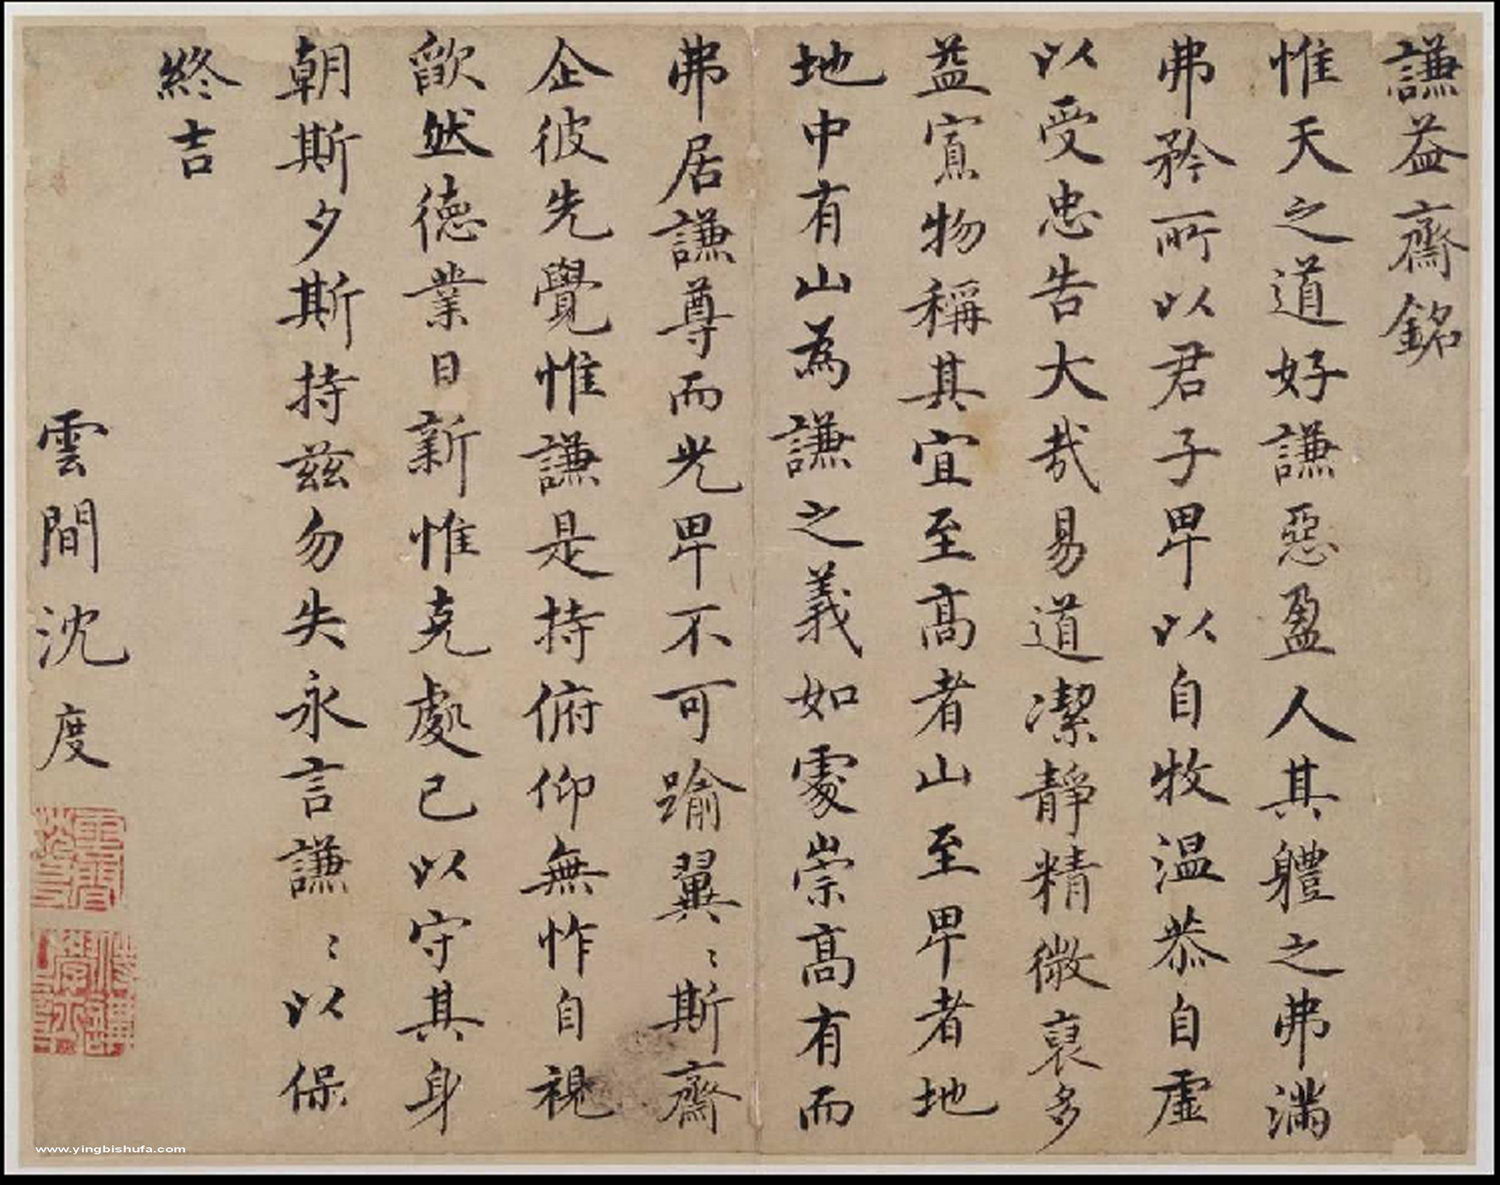 謙益齋銘
惟天之道好謙惡盈人其體之弗滿
弗矜所以君子卑以自牧温恭自虛
以受忠告大哉易道潔靜精微裒多
益寡物稱其宜至高者山至卑者地
地中有山為謙之義如處崇高有而
弗居謙尊而光卑不可踰翼〻斯齋
企彼先覺惟謙是持俯仰無怍自視
歉然德業日新惟克處己以守其身
朝斯夕斯持兹勿失永言謙〻以保
終吉
雲間沈度
www.yingbishufa.com